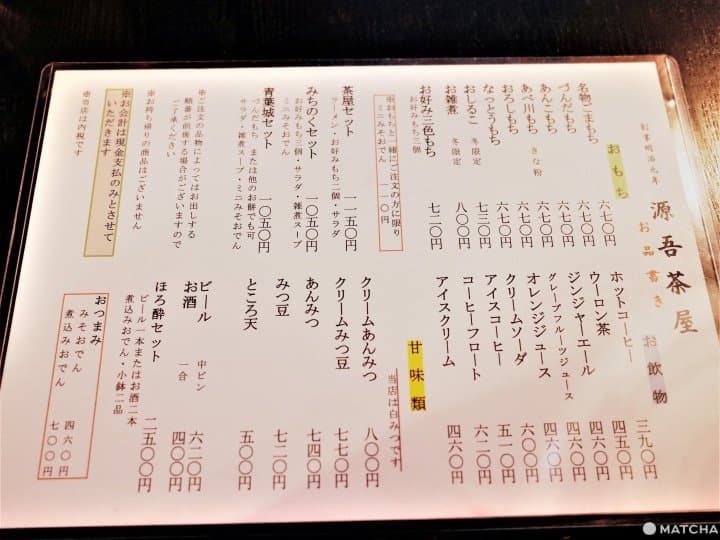 創業明治元年
源吾茶屋
お品書き
おもち
名物ごまもち 六七〇円
づんだもち 六七〇円
あんこもち 六七〇円
あべ川もち きな粉 六七〇円
おろしもち 六七〇円
なっとうもち 六七〇円
おしるこ 冬限定 七三〇円
お雑煮 冬限定 八〇〇円
お好み三色もち 七二〇円
お好みもち三個
※おもちと一緒にご注文の方に限り
ミニみそおでん 一一〇円
茶屋セット 一一五〇円
ラーメン・お好みもち二個・サラダ
みちのくセット 一〇五〇円
お好みもち三個・サラダ・雑煮スープ
ミニみそおでん
青葉城セット 一〇五〇円
づんだもち または他のお餅でも可
サラダ・雑煮スープ・ミニみそおでん
※ご注文の品物によってはお出しする
順番が前後する場合がございますので
ご了承ください
※お持ち帰りの商品はございません
※お会計は現金支払のみとさせて
いただきます
※当店は内税です
お飲物
ホットコーヒー 三九〇円
ウーロン茶 四五〇円
ジンジャーエール 四六〇円
グレープフルーツジュース 四六〇円
オレンジジュース 四六〇円
クリームソーダ 六〇〇円
アイスコーヒー 五一〇円
コーヒーフロート 六二〇円
アイスクリーム 四六〇円
甘味類
当店は白みつです
クリームあんみつ 八〇〇円
クリームみつ豆 七七〇円
あんみつ 七四〇円
みつ豆 七二〇円
ところ天 五〇〇円
ビール 中ビン 六二〇円
お酒 一合 四〇〇円
ほろ酔セット 二五〇〇円
ビール一本またはお酒二本
煮込みおでん・小鉢二品
おつまみ
みそおでん 四六〇円
煮込みおでん 七〇〇円
MATCHA